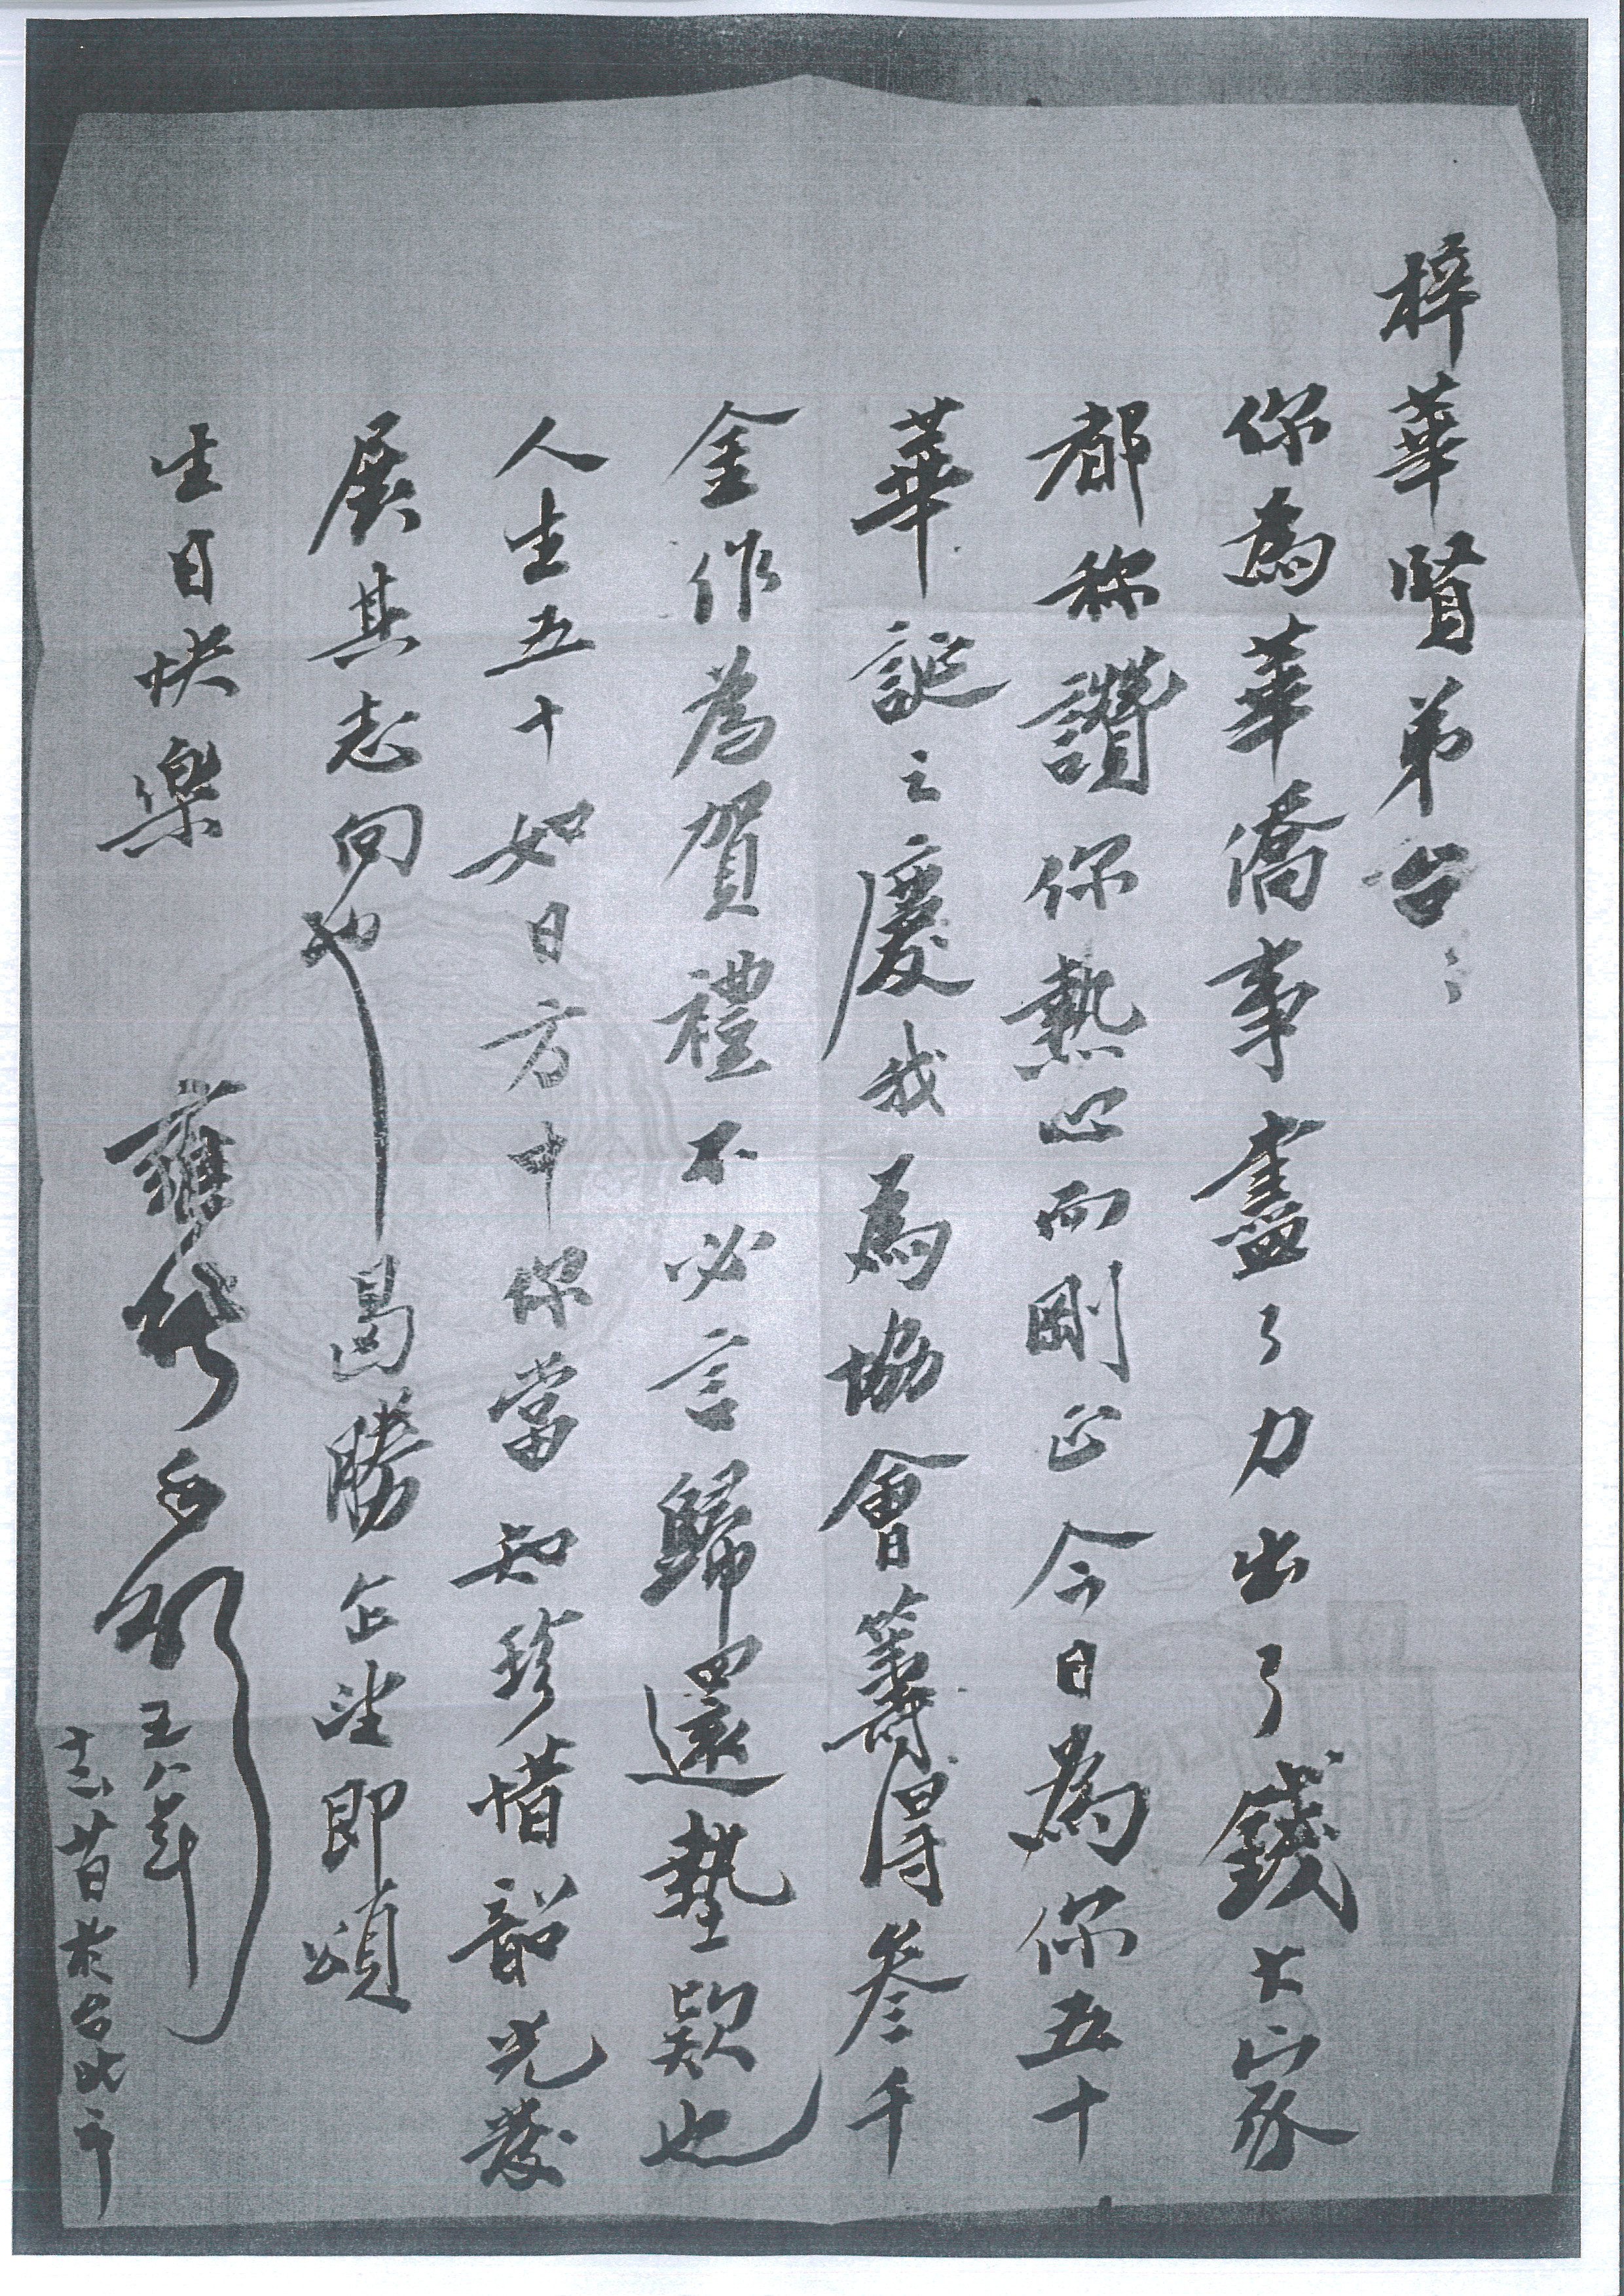 梓華賢弟台：
你為華僑事盡了力出了錢大家
都称讚你熱心而剛正今日為你五十
華誕之慶我為協會籌得叁千
金作為賀禮不必言歸還墊款也
人生五十如日方中你當知珍惜韶光發
展其志向也曷勝企望即頌
生日快樂
五八年
昔於台北市